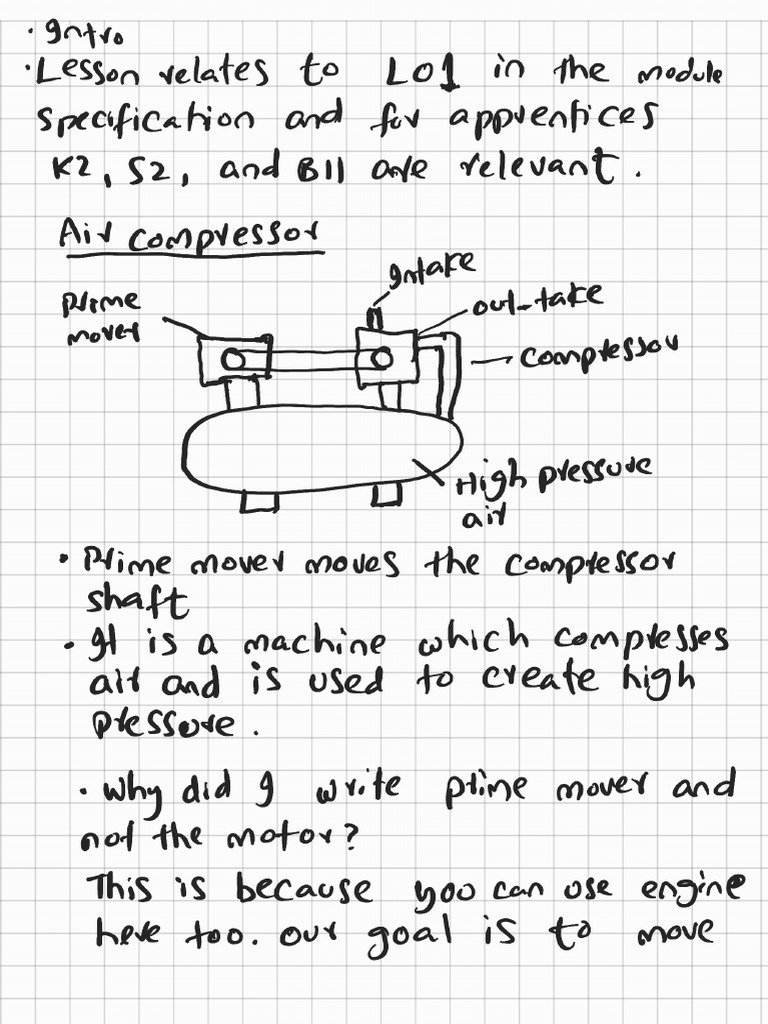 · Intro
· Lesson relates to LO1 in the module
specification and for apprentices
K2, S2, and B11 are relevant.
Air compressor
Intake
Prime
mover
out-take
compressor
High pressure
air
· Prime mover moves the compressor
shaft
· It is a machine which compresses
air and is used to create high
pressure.
· Why did I write prime mover and
not the motor?
This is because you can use engine
here too. our goal is to move